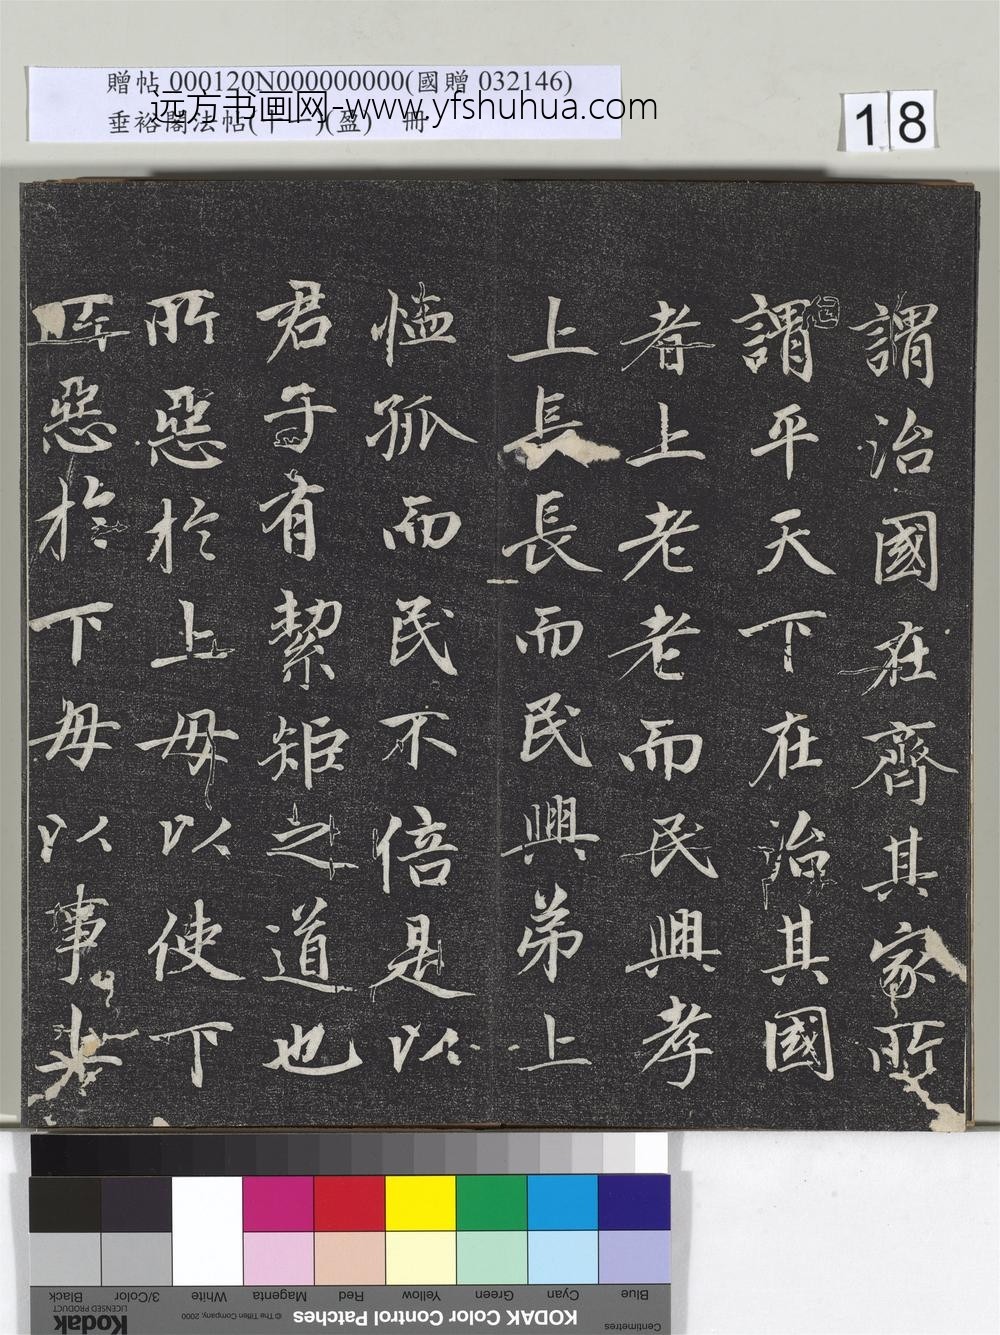 贈帖 000120N000000000(國贈 032146)
远方书画网-www.yfshuhua.com
垂裕閣法帖(十一)(盈) 冊
18
謂治國在齊其家所
謂平天下在治其國
者上老老而民興孝
上長長而民興弟上
恤孤而民不倍是以
君子有絜矩之道也
所惡於上毋以使下
所惡於下毋以事上
Blue Cyan Green Yellow Red Magenta White 3/Color Black
Centimetres
KODAK Color Control Patches
© The Tiffen Company, 2000
Kodak
LICENSED PRODUCT